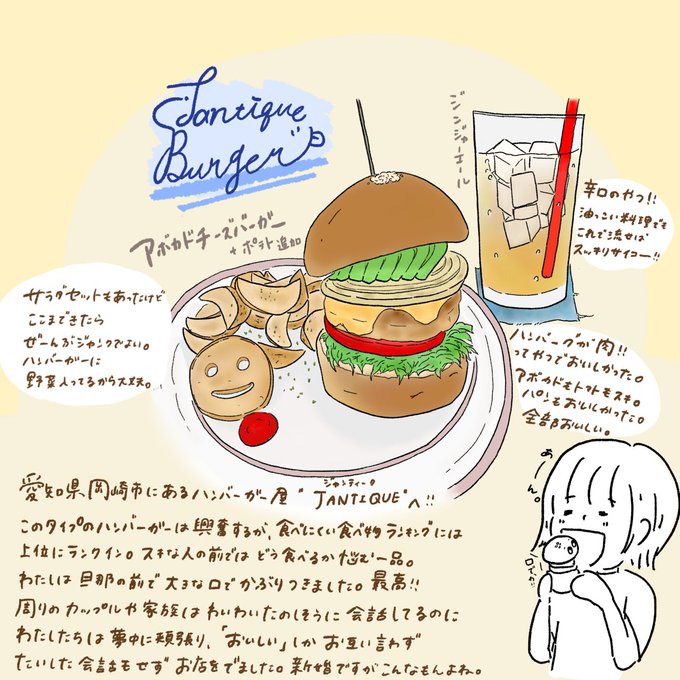 Jantique
Burger
ジンジャーエール
アボカドチーズバーガー
+ポテト追加
辛口のやつ!!
油っこい料理でも
これで流せば
スッキリサイコー!!
サラダセットもあったけど
ここまできたら
ぜーんぶジャンクでよい。
ハンバーガーに
野菜入ってるから大丈夫。
ハンバーグが肉!!
ってやつでおいしかった。
アボカドもトマトもスキ。
パンもおいしかった。
全部おいしい。
あーん。
ジャンティーク
愛知県岡崎市にあるハンバーガー屋"JANTIQUE"へ!!
このタイプのハンバーガーは興奮するが、食べにくい食べ物ランキングには
上位にランクイン。スキな人の前ではどう食べるか悩む一品。
わたしは旦那の前で大きな口でかぶりつきました。最高!!
周りのカップルや家族はわいわいたのしそうに会話してるのに
わたしたちは夢中に頬張り、「おいしい」しかお互い言わず
たいした会話もせずお店をでました。新婚ですがこんなもんよね。